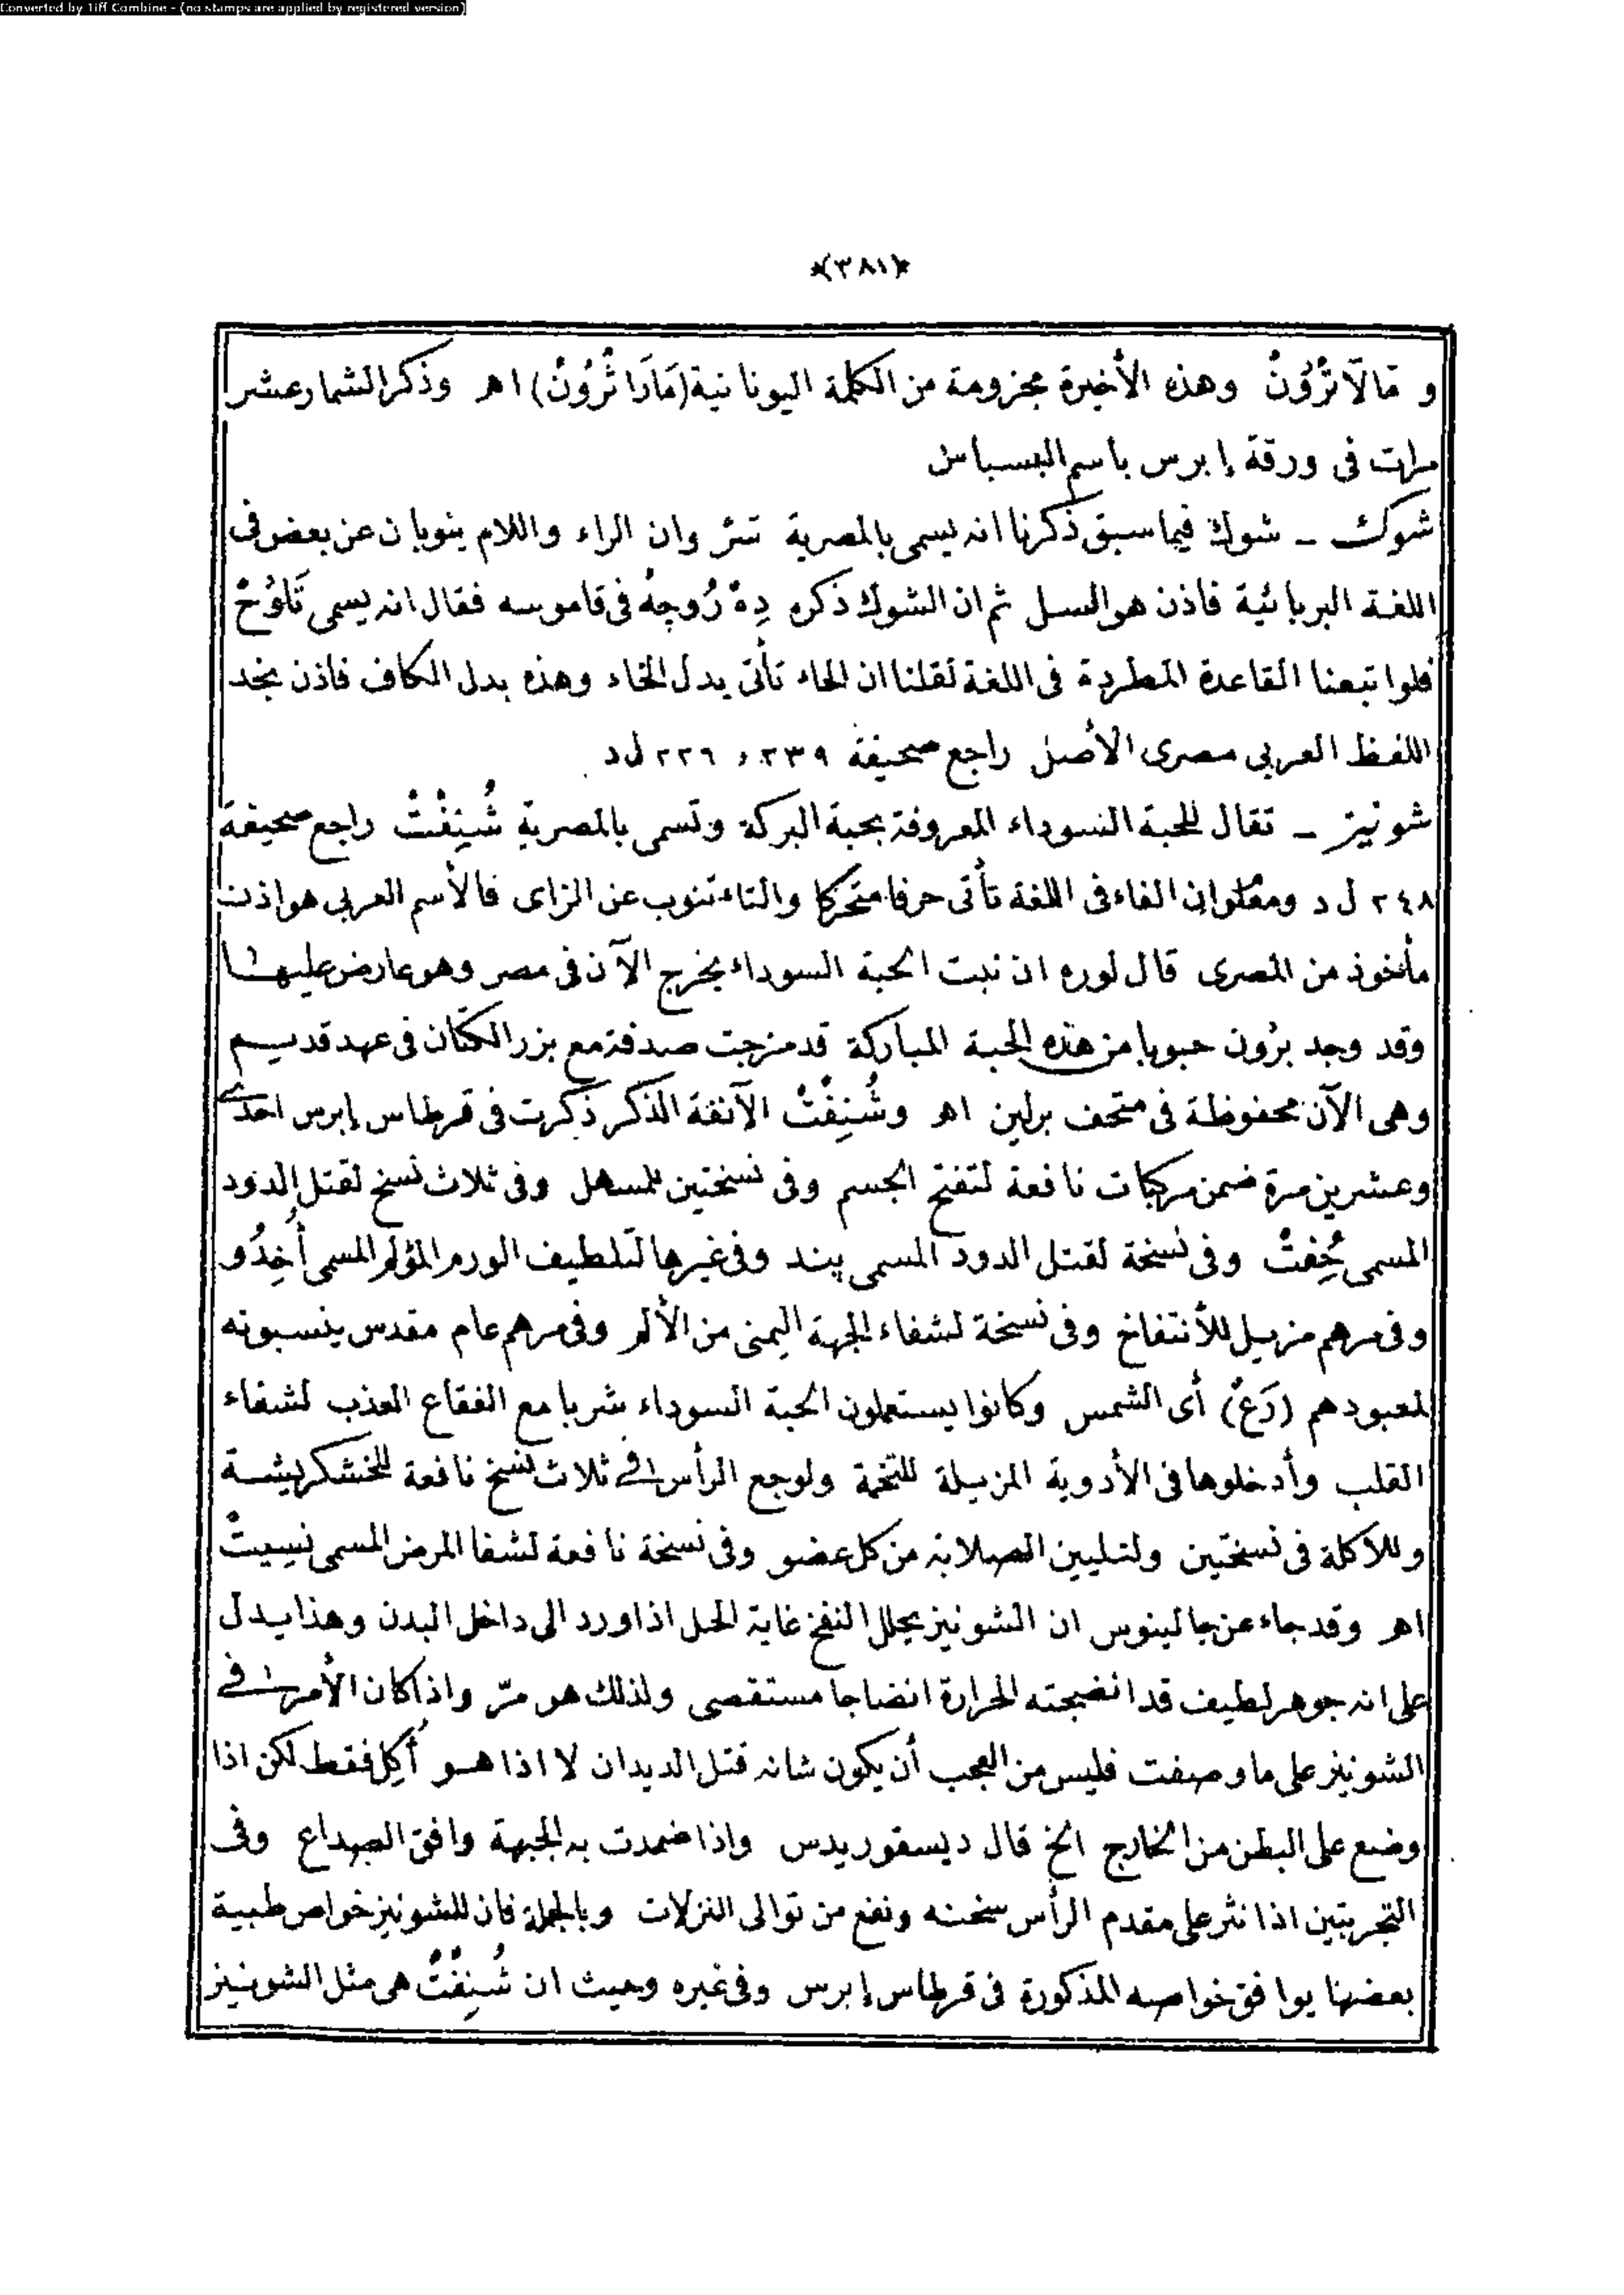 Converted by Tiff Combine - (no stamps are applied by registered version)
*(٣٨١)*
و مَالَاتْرُونْ وهذه الأخيرة مجزومة من الكلمة اليونانية (مَارَاثْرُونْ) اهـ وذكر الشمار عشر
مرات فى ورقة إبرس باسم البسباس
شوك ــ شوك فيما سبق ذكرنا انه يسمى بالمصرية وان الراء واللام ينوبان عن بعض فى
اللغة البربائية فاذن هو السل ثم ان الشوك ذكره دِهْ رُوجِهْ فى قاموسه فقال انه يسمى
فلو اتبعنا القاعدة المطردة فى اللغة لقلنا ان الحاء تأتى بدل الخاء وهذه بدل الكاف فاذن نجد
اللفظ العربى مصرى الأصل راجع صحيفة ٢٣٩ و ٢٢٦ ل د
شونيز ــ تقال للحبة السوداء المعروفة بحبة البركة وتسمى بالمصرية شُنِفْتْ راجع صحيفة
٢٤٨ ل د ومعلوم ان الفاء فى اللغة تأتى حرفا متحركا والتاء تنوب عن الزاى فالأسم العربى هو اذن
مأخوذ من المصرى قال لوره ان نبت الحبة السوداء يخرج الآن فى مصر وهو عارض عليها
وقد وجد برُون حبوبا من هذه الحبة المباركة قد مزجت صدفة مع بزر الكتان فى عهد قديم
وهى الآن محفوظة فى متحف برلين اهـ وشُنِفْتْ الآنفة الذكر ذكرت فى قرطاس إبرس احدى
وعشرين مرة ضمن مركبات نافعة لتفتح الجسم وفى نسختين للمسهل وفى ثلاث نسخ لقتل الدود
المسمى حُِفتْ وفى نسخة لقتل الدود المسمى پند وفى غيرها لتلطيف الورم المؤلم المسمى أُخِدُو
وفى مرهم مزيل للأنتفاخ وفى نسخة لشفاء الجهة اليمنى من الألم وفى مرهم عام مقدس ينسبونه
لمعبودهم (رَعْ) أى الشمس وكانوا يستعملون الحبة السوداء شربا مع الفقاع العذب لشفاء
القلب وأدخلوها فى الأدوية المزيلة للتخمة ولوجع الرأس فى ثلاث نسخ نافعة للخشكريشة
وللأكلة فى نسختين ولتليين الصلابة من كل عضو وفى نسخة نافعة لشفا المرض المسمى نسيتْ
اهـ وقد جاء عن جالينوس ان الشونيز يحلل النفخ غاية الحل اذا ورد الى داخل البدن وهذا يدل
على انه جوهر لطيف قد انضجته الحرارة انضاجا مستقصى ولذلك هو مرّ واذا كان الأمر فى
الشونيز على ما وصفت فليس من العجب أن يكون شانه قتل الديدان لا اذا هو أُكِل فقط لكن اذا
وضع على البطن من الخارج الخ قال ديسقوريدس واذا ضمدت به الجبهة وافق الصداع وفى
التجربتين اذا نثر على مقدم الرأس سخنه ونفع من توالى النزلات وبالجملة فان للشونيز خواص طبية
بعضها يوافق خواصه المذكورة فى قرطاس إبرس وفى غيره وحيث ان شُنِفْتْ هى مثل الشونيز